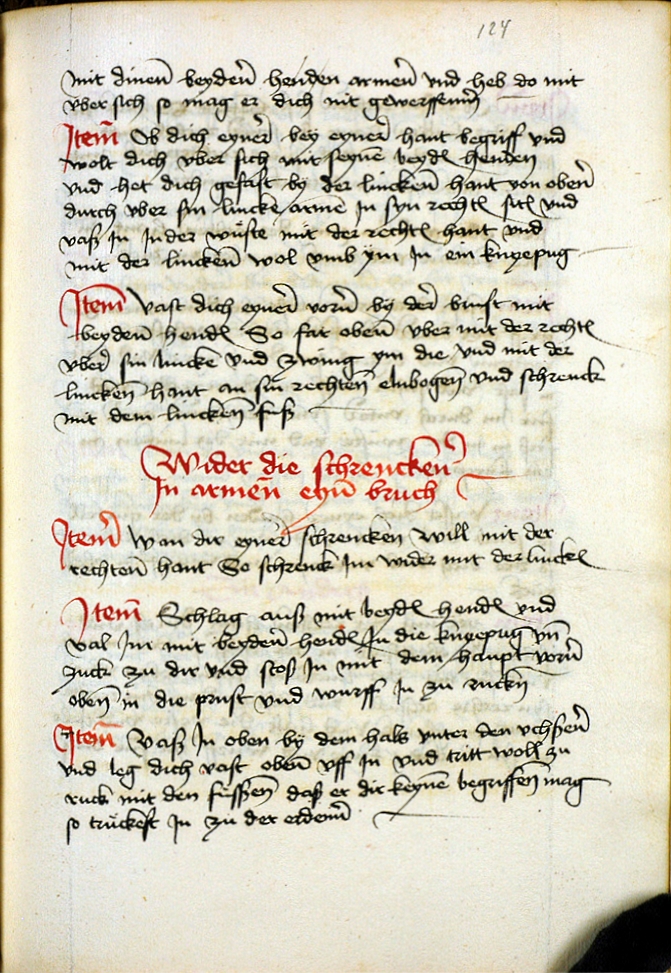 124
mit dinen beyden henden armen vnd heb do mit
vber sich so mag er dich nit gewerffenn
Item Ob dich eyner bey eyner hant begriff vnd
wolt dich vber sich mit seyne beydñ henden
vnd het dich gefast by der lincken hant von oben
durch vber sin lincke arme In syn rechtñ sitñ vnd
vaß In In der wüste mit der rechtñ hant vnd
mit der lincken wol vmb ym In ein knyepug
Item Vast dich eyner vorn by der brust mit
beyden hendñ So far oben vber mit der rechtñ
vber sin lincke vnd zwing ym die vnd mit der
lincken hant an sin rechten elnbogen vnd schrenck
mit dem lincken fuß
Wider die schrencken
In armen eyn bruch
Item Wan dir eyner schrencken will mit der
rechten hant So schrenck Im wider mit der linckñ
Item Schlag auß mit beydñ hendñ vnd
val Im mit beyden hendñ In die knyepug vñ
zuck zu dir vnd stoß In mit dem haupt vorn
oben in die prust vnd wurff In zu ruckn
Item Vaß In oben by dem halß vnter den vchßen
vnd leg dich vast oben vff In vnd tritt woll zu
ruck mit den füssen daß er dir keyne begriffen mag
so truckest In zu der erdenn